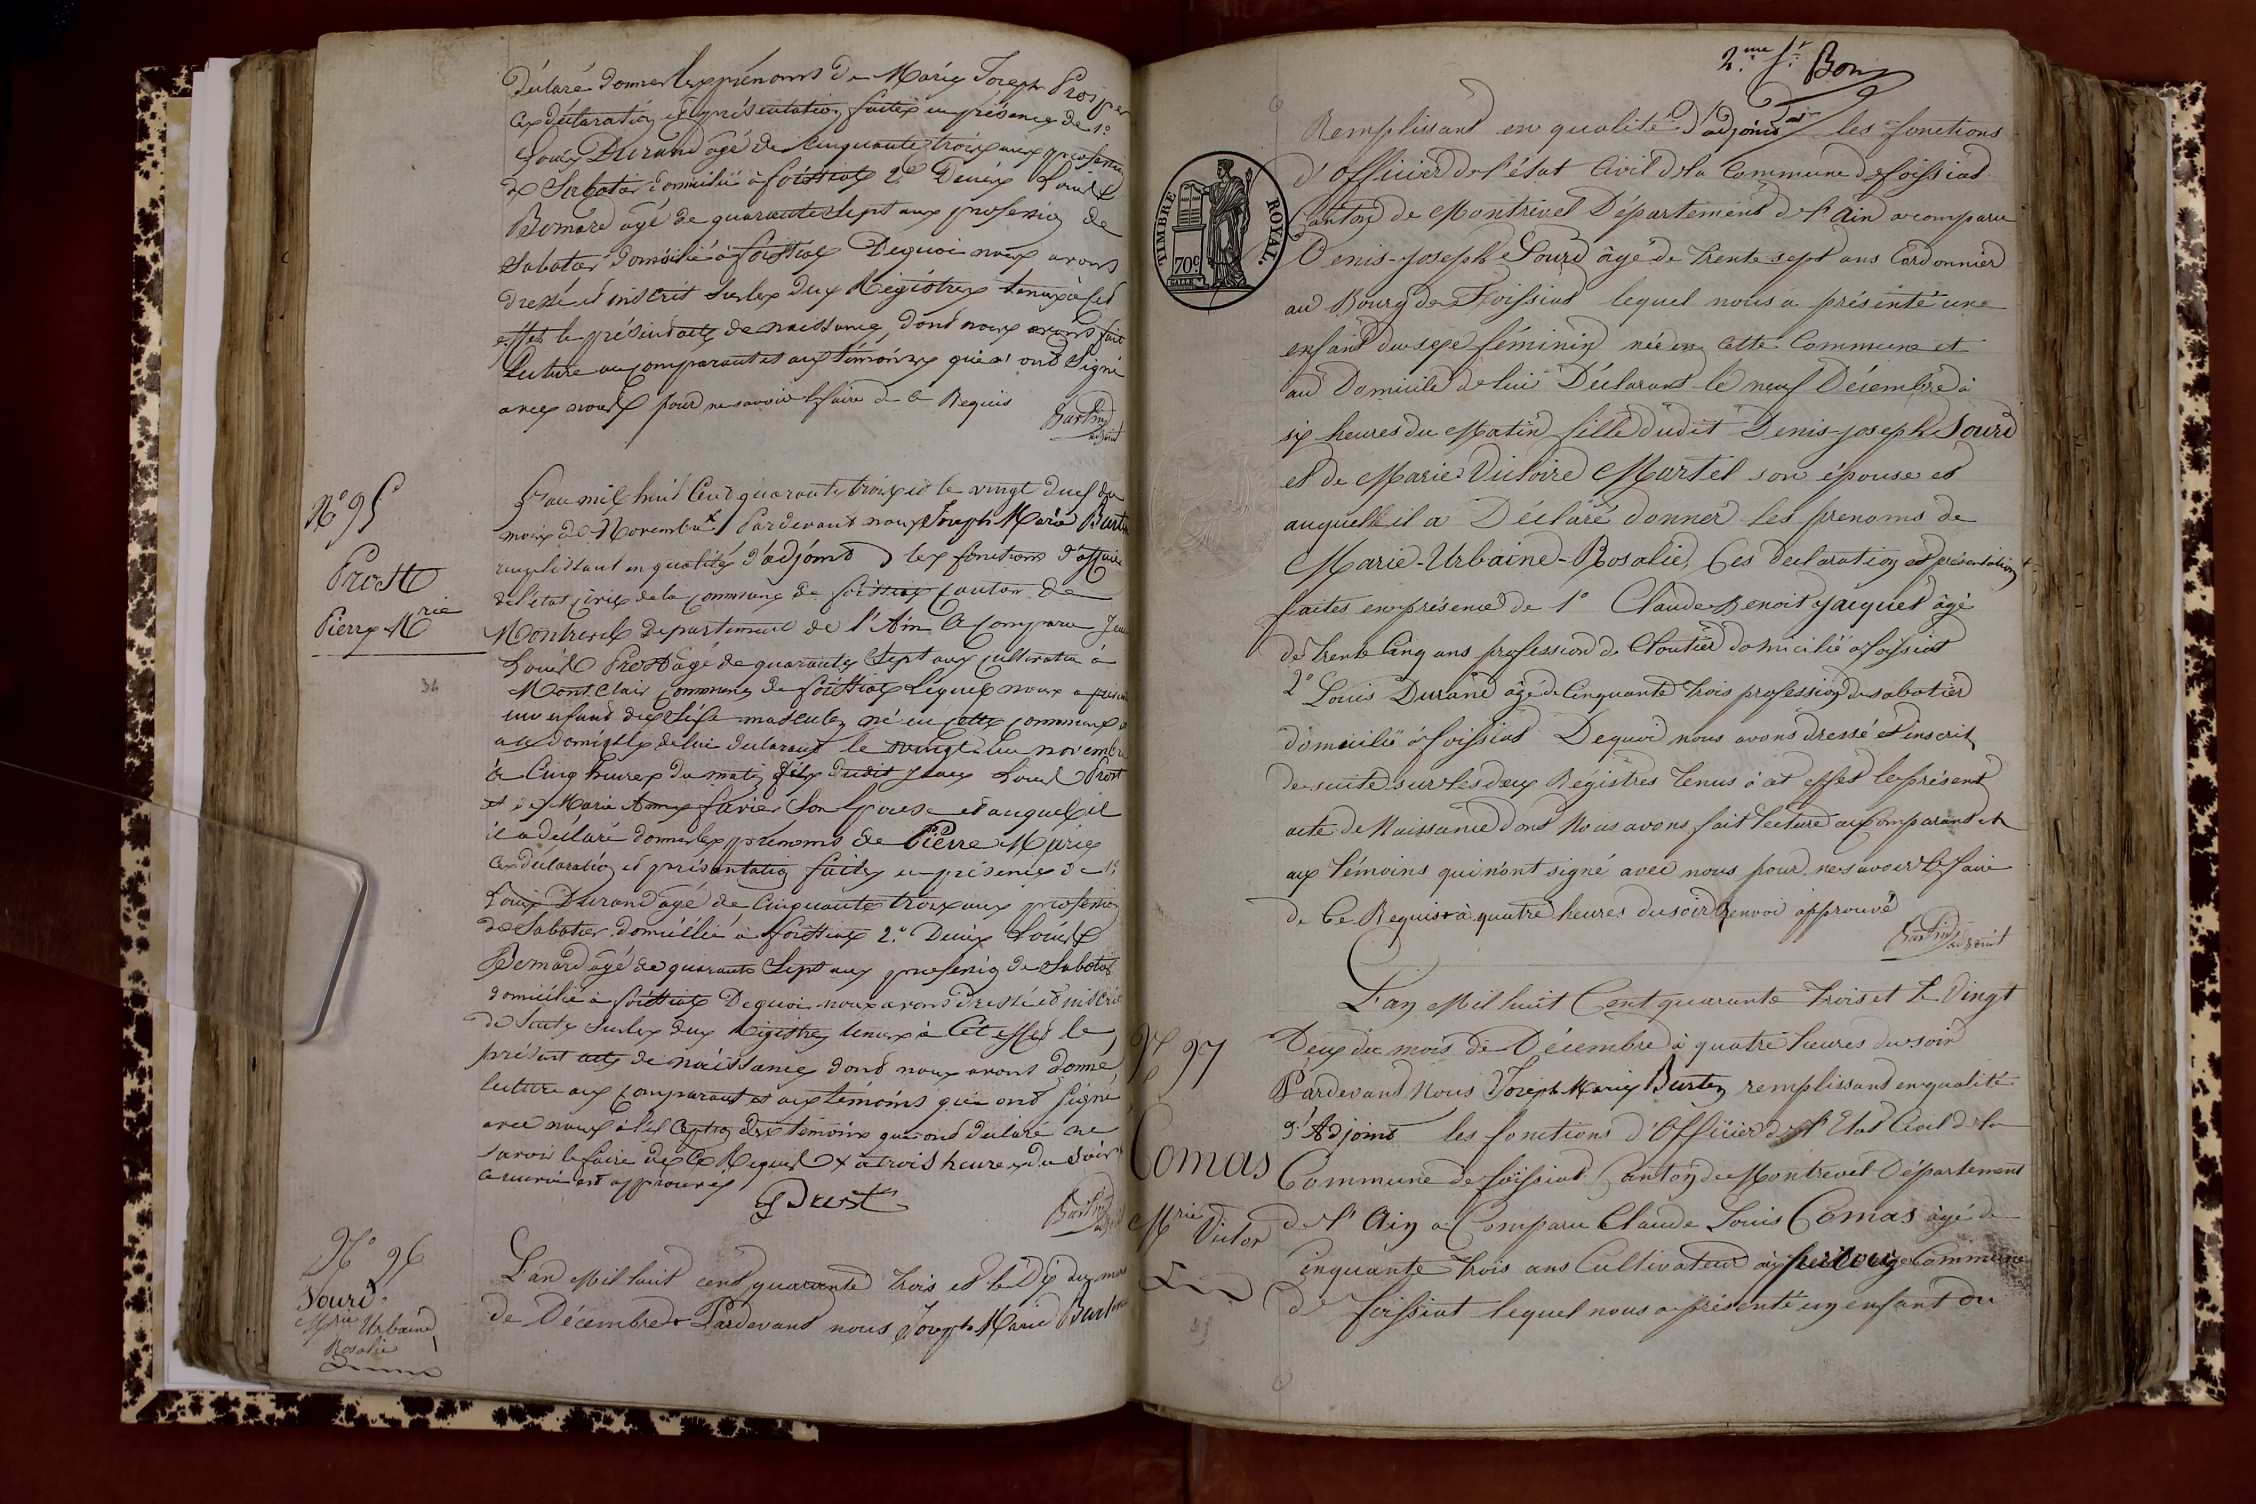 déclaré donner les prénoms de Marie Joseph Prosper
Ces déclaration et présentation faites en présence de 1°
Louis Durand agé de Cinquante trois ans profession
de Sabotier domicilié à foissiat 2° Denis Louis
Bernard agé de quarante Sept ans profession de
Sabotier domicilié à foissiat De quoi nous avons
dressé et inscrit sur les deux Régistres tenus à cet
effet le présent acte de naissance, dont nous avons fait
Lecture au comparant et aux témoins qui n'ont signé
avec nous pour ne savoir le faire de ce Requis
Burtin
adjoint
N° 95
Prost
Pierre Mrie
L'an mil huit Cent quarante trois et le vingt deux du
mois de Novembre x Pardevant nous Joseph Marie Burtin
remplissant en qualité d'adjoint les fonctions d'officier
de l'état civil de la commune de foissiat canton de
Montrevel département de l'Ain a Comparu Jean
Louis Prost agé de quarante Sept ans cultivateur à
Montclair commune de foissiat Lequel nous a présenté
un enfant du sexe masculin né en cette commune et
au domicile de lui déclarant le vingt un novembre
à Cinq heures du matin fils dudit Jean Louis Prost
et de Marie Anne favier Son épouse et auquel il
il a déclaré donner les prénoms de Pierre Marie
Ces déclaration et présentation faites en présence de 1°
Louis Durand agé de Cinquante trois ans profession
de Sabotier domicilié à foissiat 2° Denis Louis
Bernard agé de quarante Sept ans profession de Sabotier
domicilié à foissiat De quoi nous avons dressé et inscrit
de Suite sur les deux Régistres tenus à Cet effet le
présent acte de naissance dont nous avons donné
lecture aux comparant et aux témoins qui ont signé
avec nous à l'exception des témoins qui ont déclaré ne
savoir le faire de ce Requis x à trois heures du Soir
ce renvoi est approuvé
Prost
Burtin
adjoint
N° 96
Sourd
Mrie Urbaine
Rosalie
L'an Mil huit cent quarante trois et le Dix du mois
de Décembre + Pardevant nous Joseph Marie Burtin
2.me f.t Bon
Remplissant en qualité d'adjoint les fonctions
d'Officier de l'état Civil de la Commune de foissiat
Canton de Montrevel Département de l'Ain a comparu
Denis-Joseph Sourd âgé de trente sept ans Cordonnier
au Bourg de Foissiat lequel nous a présenté une
enfant du sexe féminin née en cette Commune et
au Domicile de lui Déclarant le neuf Décembre à
six heures du Matin fille dudit Denis-joseph Sourd
et de Marie Victoire Martel son épouse et
auquelle il a Déclaré donner les prenoms de
Marie-Urbaine-Rosalie, Ces déclaration et présentation
faites en présence de 1° Claude Benoit Jacquet âgé
de trente Cinq ans profession de Cloutier domicilié à foissiat
2° Louis Durand âgé de Cinquante trois profession de sabotier
domicilié à foissiat De quoi nous avons dressé et inscrit
de suite sur les deux Régistres tenus à cet effet le présent
acte de Naissance dont Nous avons fait lecture au Comparant et
aux témoins qui n'ont signé avec nous pour ne savoir le faire
de Ce Requis + à quatre heures du soir Renvoi approuvé
Burtin
adjoint
TIMBRE ROYAL.
70c
N° 97
Comas
Mrie Victor
L'an Mil huit Cent quarante trois et le Vingt
Deux du mois de Décembre à quatre heures du soir
Pardevant Nous Joseph Marie Burtin remplissant en qualité
d'Adjoint les fonctions d'Officier de l'Etat Civil de la
Commune de foissiat Canton de Montrevel Département
de l'Ain a Comparu Claude Louis Comas âgé de
Cinquante trois ans Cultivateur à Commune
de foissiat lequel nous a présenté un enfant du